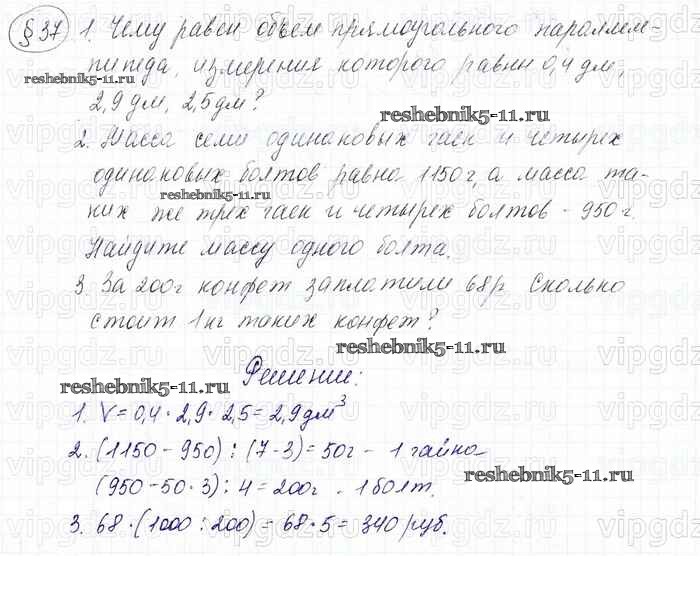 § 37 1. Чему равен объем прямоугольного параллеле-
пипеда, измерения которого равны 0,4 дм,
reshebnik5-11.ru
2,9 дм, 2,5 дм?
reshebnik5-11.ru
2. Масса семи одинаковых гаек и четырех
одинаковых болтов равна 1150 г, а масса та-
reshebnik5-11.ru
ких же трех гаек и четырех болтов - 950 г.
Найдите массу одного болта.
3. За 200 г конфет заплатили 68 р. Сколько
стоит 1 кг таких конфет?
reshebnik5-11.ru
Решение:
reshebnik5-11.ru
1. V = 0,4 · 2,9 · 2,5 = 2,9 дм³
2. (1150 - 950) : (7 - 3) = 50 г - 1 гайка
reshebnik5-11.ru
(950 - 50 · 3) : 4 = 200 г - 1 болт.
3. 68 · (1000 : 200) = 68 · 5 = 340 руб.